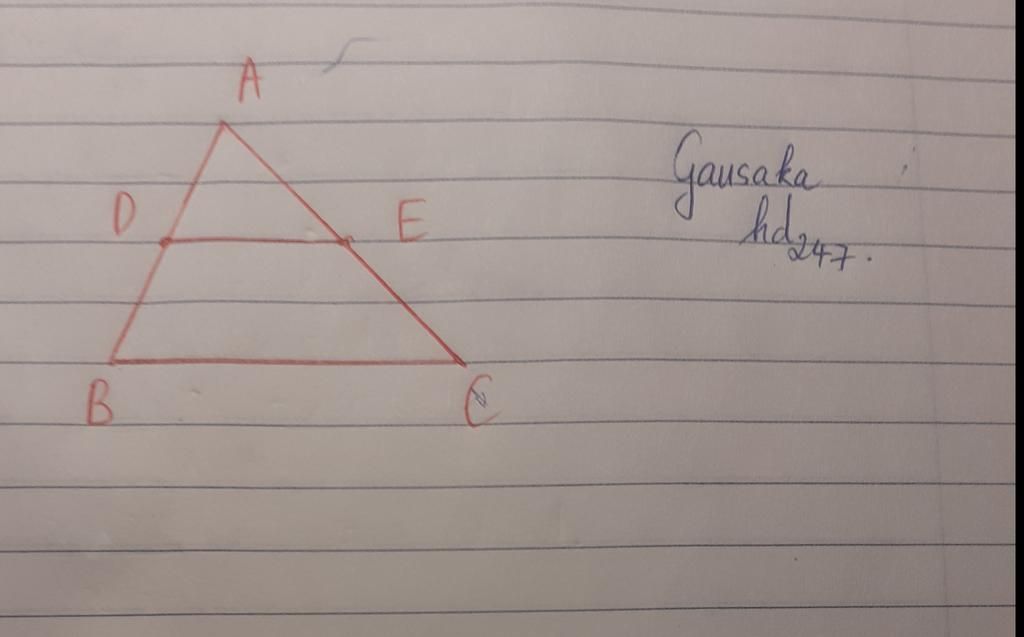 A
D
E
B
C
Gausaka
hd247.